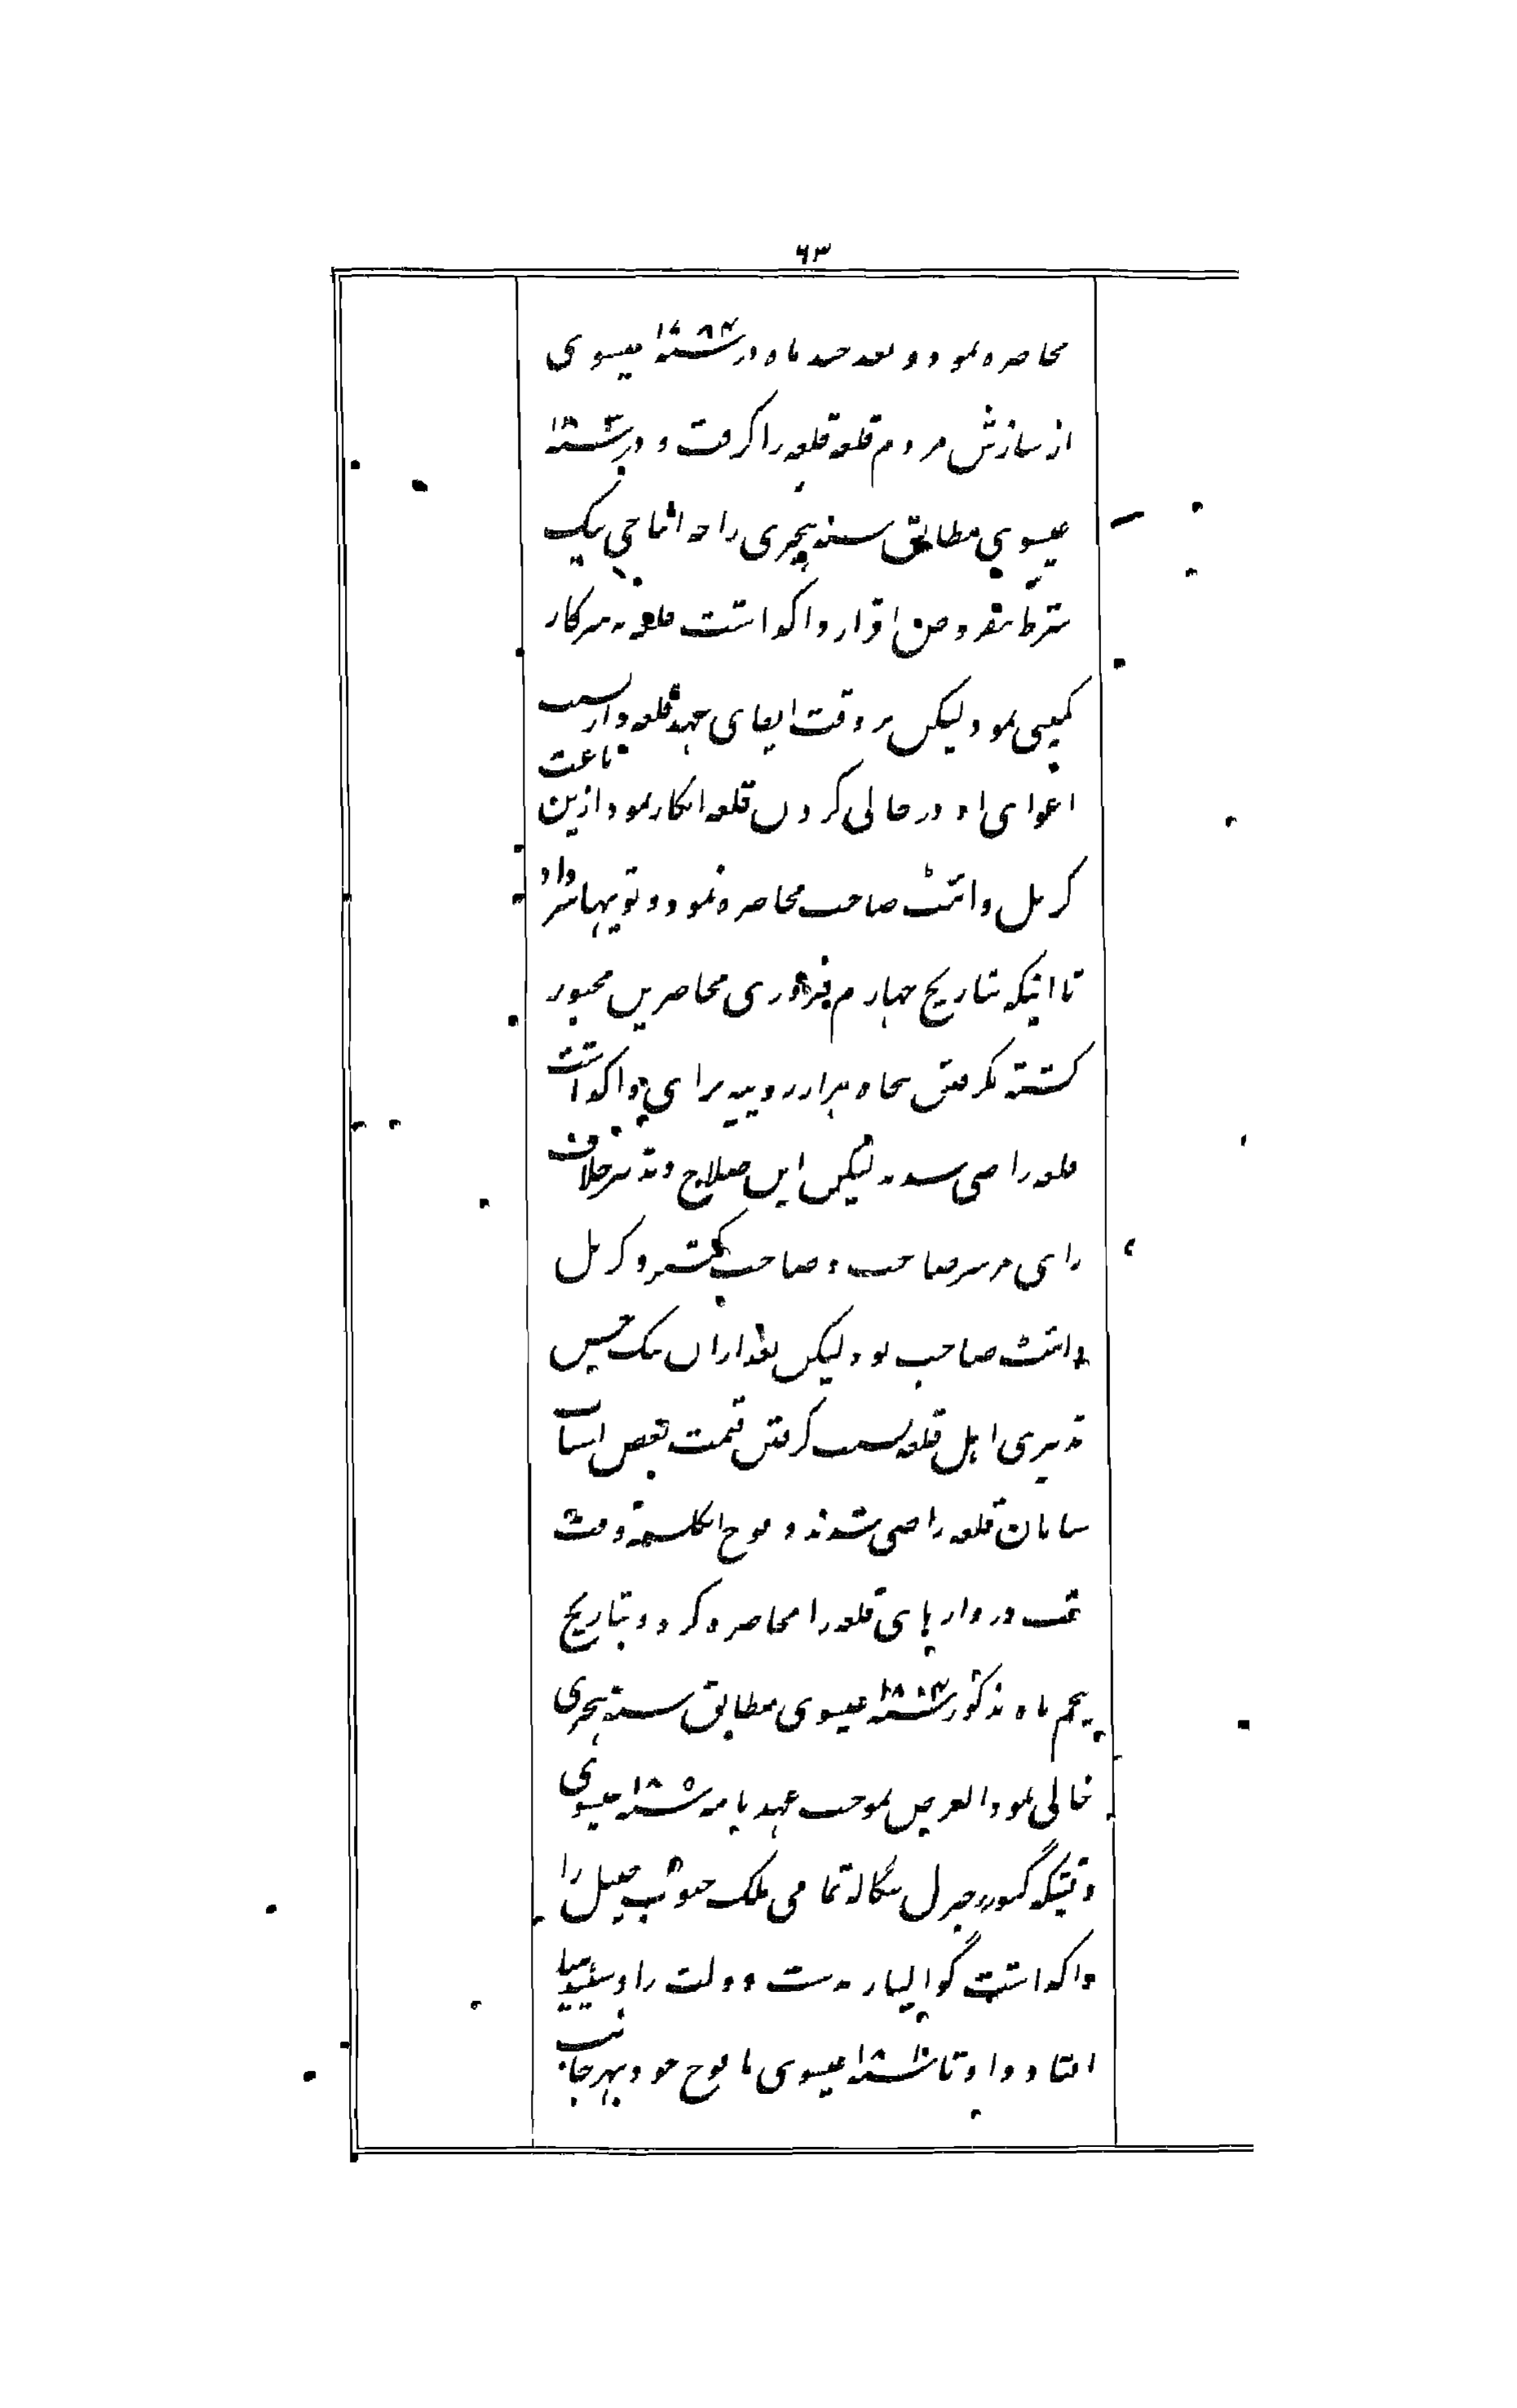 ۶۳
محاصره نمود و بعد چند ماه در سنه ۱۷۸۴ عیسوی
از سازش مردم قلعه قلعه را گرفت و در سنه
عیسوی مطابق سنه هجری راجه انباجی بیک
شرط مفروض اقرار واگذاشت قلعه به سرکار
کمپنی نمود لیکن بر وقت ایفای عهد قلعه دار بسبب
اغوای او در خالی کردن قلعه انکار نمود ازین باعث
کرنل وائٹ صاحب محاصره نمود و توپها سر داد
تا اینکه بتاریخ چهارم فروری محاصرین مجبور
گشته بگرفتن پنجاه هزار روپیه برای واگذاشت
قلعه راضی شدند لیکن این صلاح و تدبیر خلاف
رای مرسر صاحب و صاحب کمشنر و کرنل
وائٹ صاحب بود لیکن بعد ازان یک
تدبیری اهل قلعه بسبب گرفتن قیمت بعض اسباب
سامان قلعه راضی شدند و فوج انگلیسیه وقت
شب دروازهای قلعه را محاصره کرد و بتاریخ
پنجم ماه مذکور سنه ۱۸۰۴ عیسوی مطابق سنه هجری
خالی نمود الغرض بموجب عهد نامه سنه ۱۸۰۵ عیسوی
وقتیکه گورنر جنرل بنگاله تمامی ملک جنوب چنبل را
واگذاشت گوالیار بدست دولت راو سیندهیا
افتاد و او تا سنه ۱۸۱۰ عیسوی با فوج خود بهر جانب